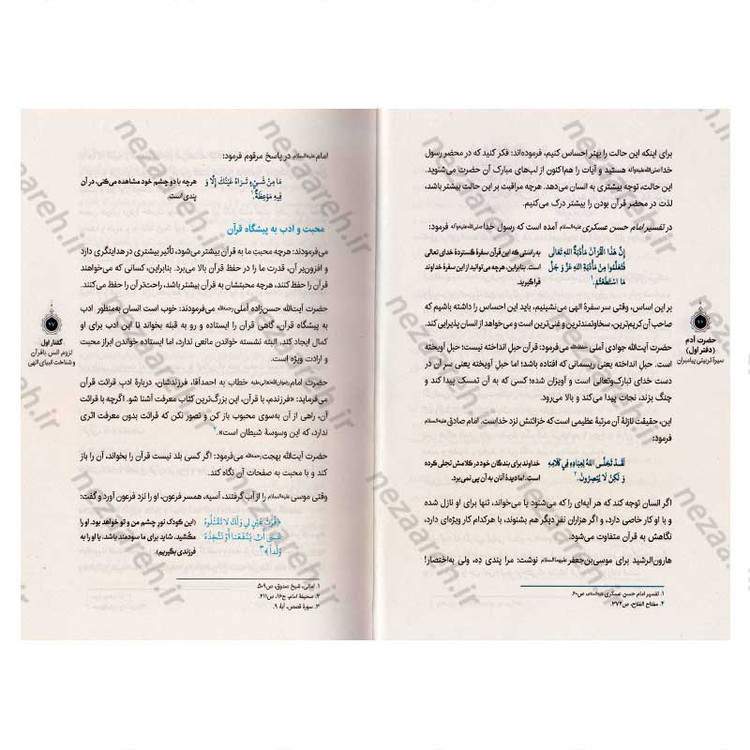 برای اینکه این حالت را بهتر احساس کنیم، فرموده‌اند: فکر کنید که در محضر رسول
خدا صلی‌الله‌علیه‌وآله هستید و آیات را هم‌اکنون از لب‌های مبارک آن حضرت می‌شنوید.
این حالت، توجه بیشتری به انسان می‌دهد. هرچه مراقبت بر این حالت بیشتر باشد،
لذت در محضر قرآن بودن را بیشتر درک می‌کنیم.
در تفسیر امام حسن عسکری علیه‌السلام آمده است که رسول خدا صلی‌الله‌علیه‌وآله فرمود:
إِنَّ هَذَا الْقُرْآنَ مَأْدُبَةُ اللهِ تَعَالَى
فَتَعَلَّمُوا مِنْ مَأْدُبَةِ اللهِ عَزَّ وَ جَلَّ
مَا اسْتَطَعْتُمْ.۱
به راستی که این قرآن سفرهٔ گستردهٔ خدای تعالی
است. بنابراین، هرچه می‌توانید از این سفرهٔ خداوند
فراگیرید.
بر این اساس، وقتی سر سفرهٔ الهی می‌نشینیم، باید این احساس را داشته باشیم که
صاحب آن کریم‌ترین، سخاوتمندترین و غنی‌ترین است و می‌خواهد از انسان پذیرایی کند.
حضرت آیت‌الله جوادی آملی حفظه‌الله می‌فرمود: قرآن حبل انداخته نیست؛ حبل آویخته
است. حبل انداخته یعنی ریسمانی که افتاده باشد؛ اما حبل آویخته یعنی سر آن در
دست خدای تبارک‌وتعالی است و آویزان شده؛ کسی که به آن تمسک پیدا کند و
چنگ بزند، نجات پیدا می‌کند و بالا می‌رود.
این، حقیقت نازلهٔ آن مرتبهٔ عظیمی است که خزائنش نزد خداست. امام صادق علیه‌السلام
فرمود:
لَقَدْ تَجَلَّى اللهُ لِعِبَادِهِ فِي كَلَامِهِ
وَ لَكِنْ لَا يُبْصِرُونَ.۲
خداوند برای بندگان خود در کلامش تجلی کرده
است، اما دیدهٔ آنان به آن پی نمی‌برد.
اگر انسان توجه کند که هر آیه‌ای را که می‌شنود یا می‌خواند، تنها برای او نازل شده
و با او کار خاصی دارد، و اگر هزاران نفر دیگر هم بشنوند، با هرکدام کار ویژه‌ای دارد،
نگاهش به قرآن متفاوت می‌شود.
هارون‌الرشید برای موسی‌بن‌جعفر علیهماالسلام نوشت: مرا پندی ده، ولی به‌اختصار!
۱. تفسیر امام حسن عسکری علیه‌السلام، ص۶۰.
۲. مفتاح الفلاح، ص۳۷۲.
حضرت آدم
(دفتر اول)
سیرهٔ تربیتی پیامبران
امام علیه‌السلام در پاسخ مرقوم فرمود:
مَا مِنْ شَيْءٍ تَرَاهُ عَيْنَكَ إِلَّا وَ
فِيهِ مَوْعِظَةٌ.۱
هرچه با دو چشم خود مشاهده می‌کنی، در آن
پندی است.
محبت و ادب به پیشگاه قرآن
می‌فرمودند: هرچه محبتِ ما به قرآن بیشتر می‌شود، تأثیر بیشتری در هدایتگری دارد
و افزون‌بر آن، قدرت ما را در حفظ قرآن بالا می‌برد. بنابراین، کسانی که می‌خواهند
قرآن را حفظ کنند، هرچه محبتشان به قرآن بیشتر باشد، راحت‌تر آن را حفظ می‌کنند.
حضرت آیت‌الله حسن‌زاده آملی رحمه‌الله می‌فرمودند: خوب است انسان به‌منظور ادب
به پیشگاه قرآن، گاهی قرآن را ایستاده و رو به قبله بخواند تا این ادب برای او
کمال ایجاد کند. البته نشسته خواندن مانعی ندارد، اما ایستاده خواندن ابراز محبت
و ارادت ویژه است.
حضرت امام رضوان‌الله‌تعالی‌علیه خطاب به احمدآقا، فرزندشان، دربارهٔ ادبِ قرائت قرآن
می‌فرماید: «فرزندم، با قرآن، این بزرگ‌ترین کتاب معرفت آشنا شو. اگرچه با قرائت
آن، راهی از آن به‌سوی محبوب باز کن و تصور نکن که قرائت بدون معرفت اثری
ندارد، که این وسوسهٔ شیطان است».۲
حضرت آیت‌الله بهجت رحمه‌الله می‌فرمود: اگر کسی بلد نیست قرآن را بخواند، آن را باز
کند و با محبت به صفحات آن نگاه کند.
وقتی موسی علیه‌السلام را از آب گرفتند، آسیه، همسر فرعون، او را نزد فرعون آورد و گفت:
﴿قُرَّتُ عَيْنٍ لِي وَلَكَ لَا تَقْتُلُوهُ
عَسَى أَنْ يَنْفَعَنَا أَوْ نَتَّخِذَهُ
وَلَدًا﴾۳
(این کودک نور چشم من و تو خواهد بود. او را
مکُشید، شاید برای ما سودمند باشد، یا او را به
فرزندی بگیریم).
۱. امالی، شیخ صدوق، ص۵۰۹.
۲. صحیفهٔ امام، ج۱۶، ص۲۱۱.
۳. سورهٔ قصص، آیهٔ ۹.
۲۷
گفتار اول
لزوم انس با قرآن
و شناخت انبیای الهی
nezaareh.ir